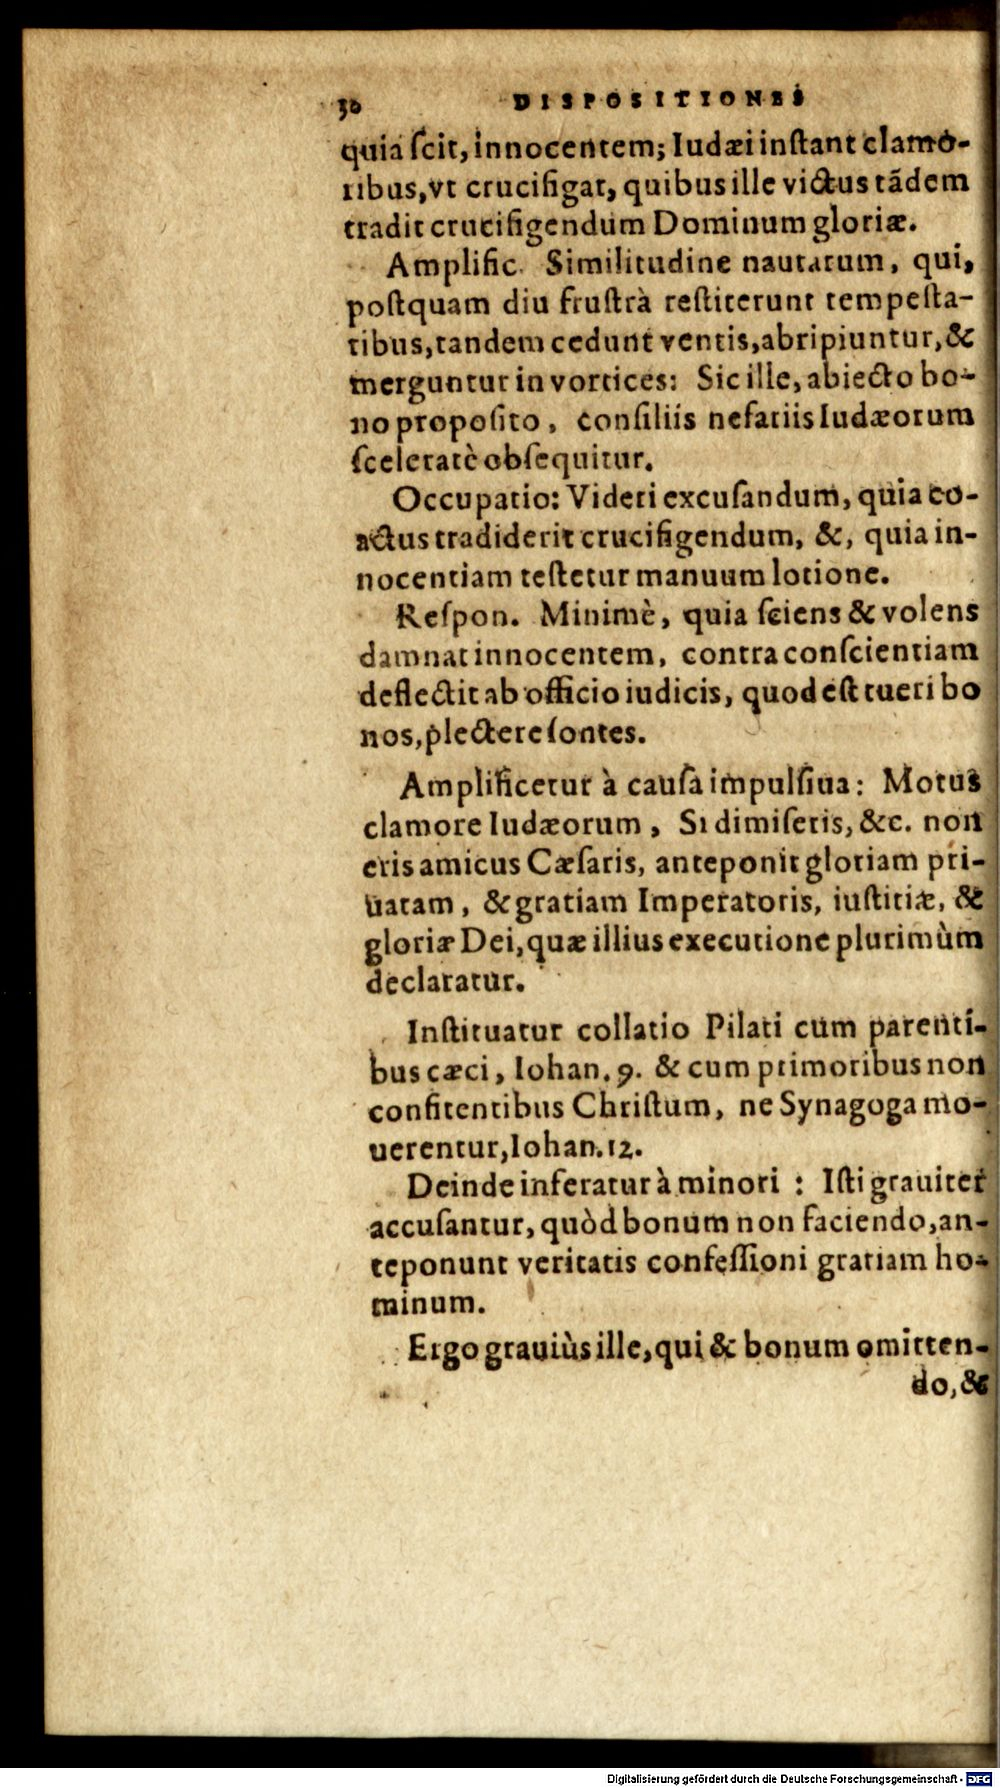 30 DISPOSITIONES
quia ſcit, innocentem; Iudæi inſtant clamo-
ribus, vt crucifigat, quibus ille victus tãdem
tradit crucifigendum Dominum gloriæ.
Amplific. Similitudine nautarum, qui,
poſtquam diu fruſtrà reſtiterunt tempeſta-
tibus, tandem cedunt ventis, abripiuntur, &
merguntur in vortices: Sic ille, abiecto bo-
no propoſito, conſiliis nefariis Iudæorum
ſceleratè obſequitur.
Occupatio: Videri excuſandum, quia co-
actus tradiderit crucifigendum, &, quia in-
nocentiam teſtetur manuum lotione.
Reſpon. Minimè, quia ſciens & volens
damnat innocentem, contra conſcientiam
deflectit ab officio iudicis, quod eſt tueri bo
nos, plectere ſontes.
Amplificetur à cauſa impulſiua: Motus
clamore Iudæorum, Si dimiſeris, &c. non
eris amicus Cæſaris, anteponit gloriam pri-
uatam, & gratiam Imperatoris, iuſtitiæ, &
gloriæ Dei, quæ illius executione plurimùm
declaratur.
Inſtituatur collatio Pilati cum parenti-
bus cæci, Iohan. 9. & cum primoribus non
confitentibus Chriſtum, ne Synagoga mo-
uerentur, Iohan. 12.
Deinde inferatur à minori : Iſti grauiter
accuſantur, quòd bonum non faciendo, an-
teponunt veritatis confeſſioni gratiam ho-
minum.
Ergo grauiùs ille, qui & bonum omitten-
do, &
Digitalisierung gefördert durch die Deutsche Forschungsgemeinschaft - DFG